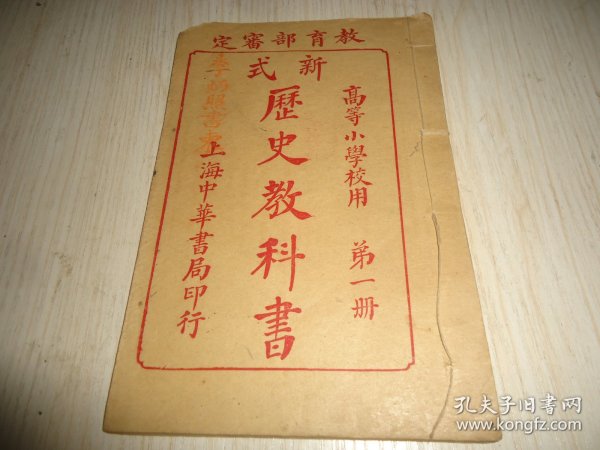 教育部審定
新式
歷史教科書
高等小學校用 第一册
上海中華書局印行
孔夫子旧书网
www.kongfz.com